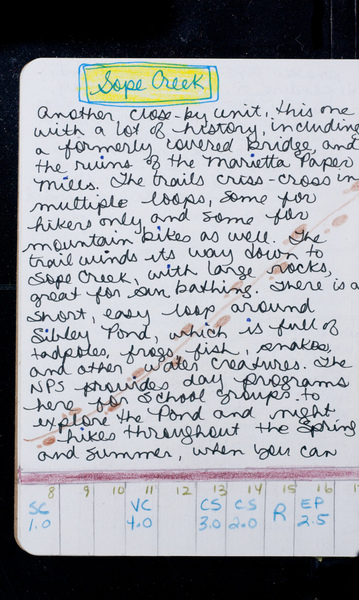 Sope Creek
Another, close-by unit, this one
with a lot of history, including
a formerly covered bridge, and
the ruins of the Marietta Paper
Mills. The trails criss-cross in
multiple loops, some for
hikers only and some for
mountain bikes as well. The
trail winds its way down to
Sope Creek, with large rocks,
great for sun bathing. There is a
short, easy loop round
Sibley Pond, which is full of
tadpoles, frogs, fish, snakes,
and other water creatures. The
NPS provides day programs
here for school groups to
explore the Pond and night
hikes throughout the Spring
and Summer, when you can
8 9 10 11 12 13 14 15 16
SC VC CS CS R EP
1.0 4.0 3.0 2.0 2.5